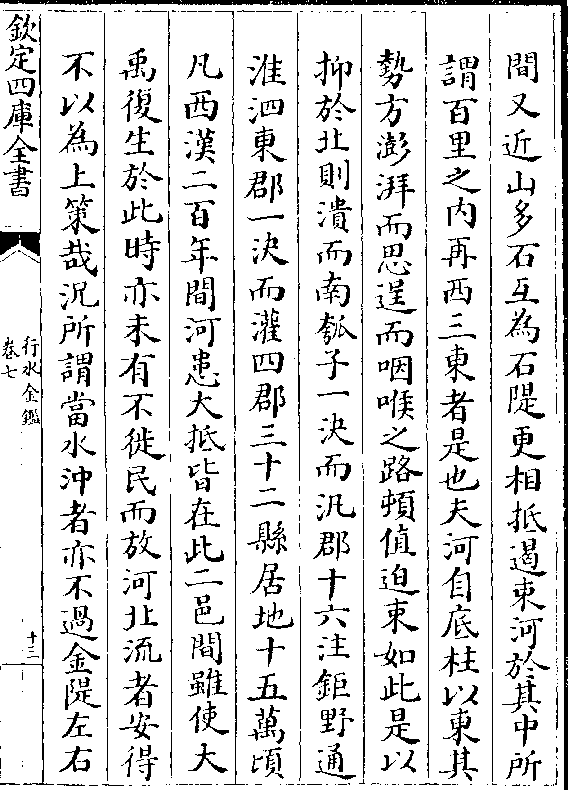 間又近山多石互為石隄更相抵遏束河於其中所
謂百里之内再西三東者是也夫河自底柱以東其
勢方澎湃而思逞而咽喉之路頓值迫束如此是以
抑於北則潰而南瓠子一決而汎郡十六注鉅野通
淮泗東郡一決而灌四郡三十二縣居地十五萬頃
凡西漢二百年間河患大抵皆在此二邑間雖使大
禹復生於此時亦未有不徙民而放河北流者安得
不以為上策哉況所謂當水沖者亦不過金隄左右
欽定四庫全書
行水金鑑
卷七
十三